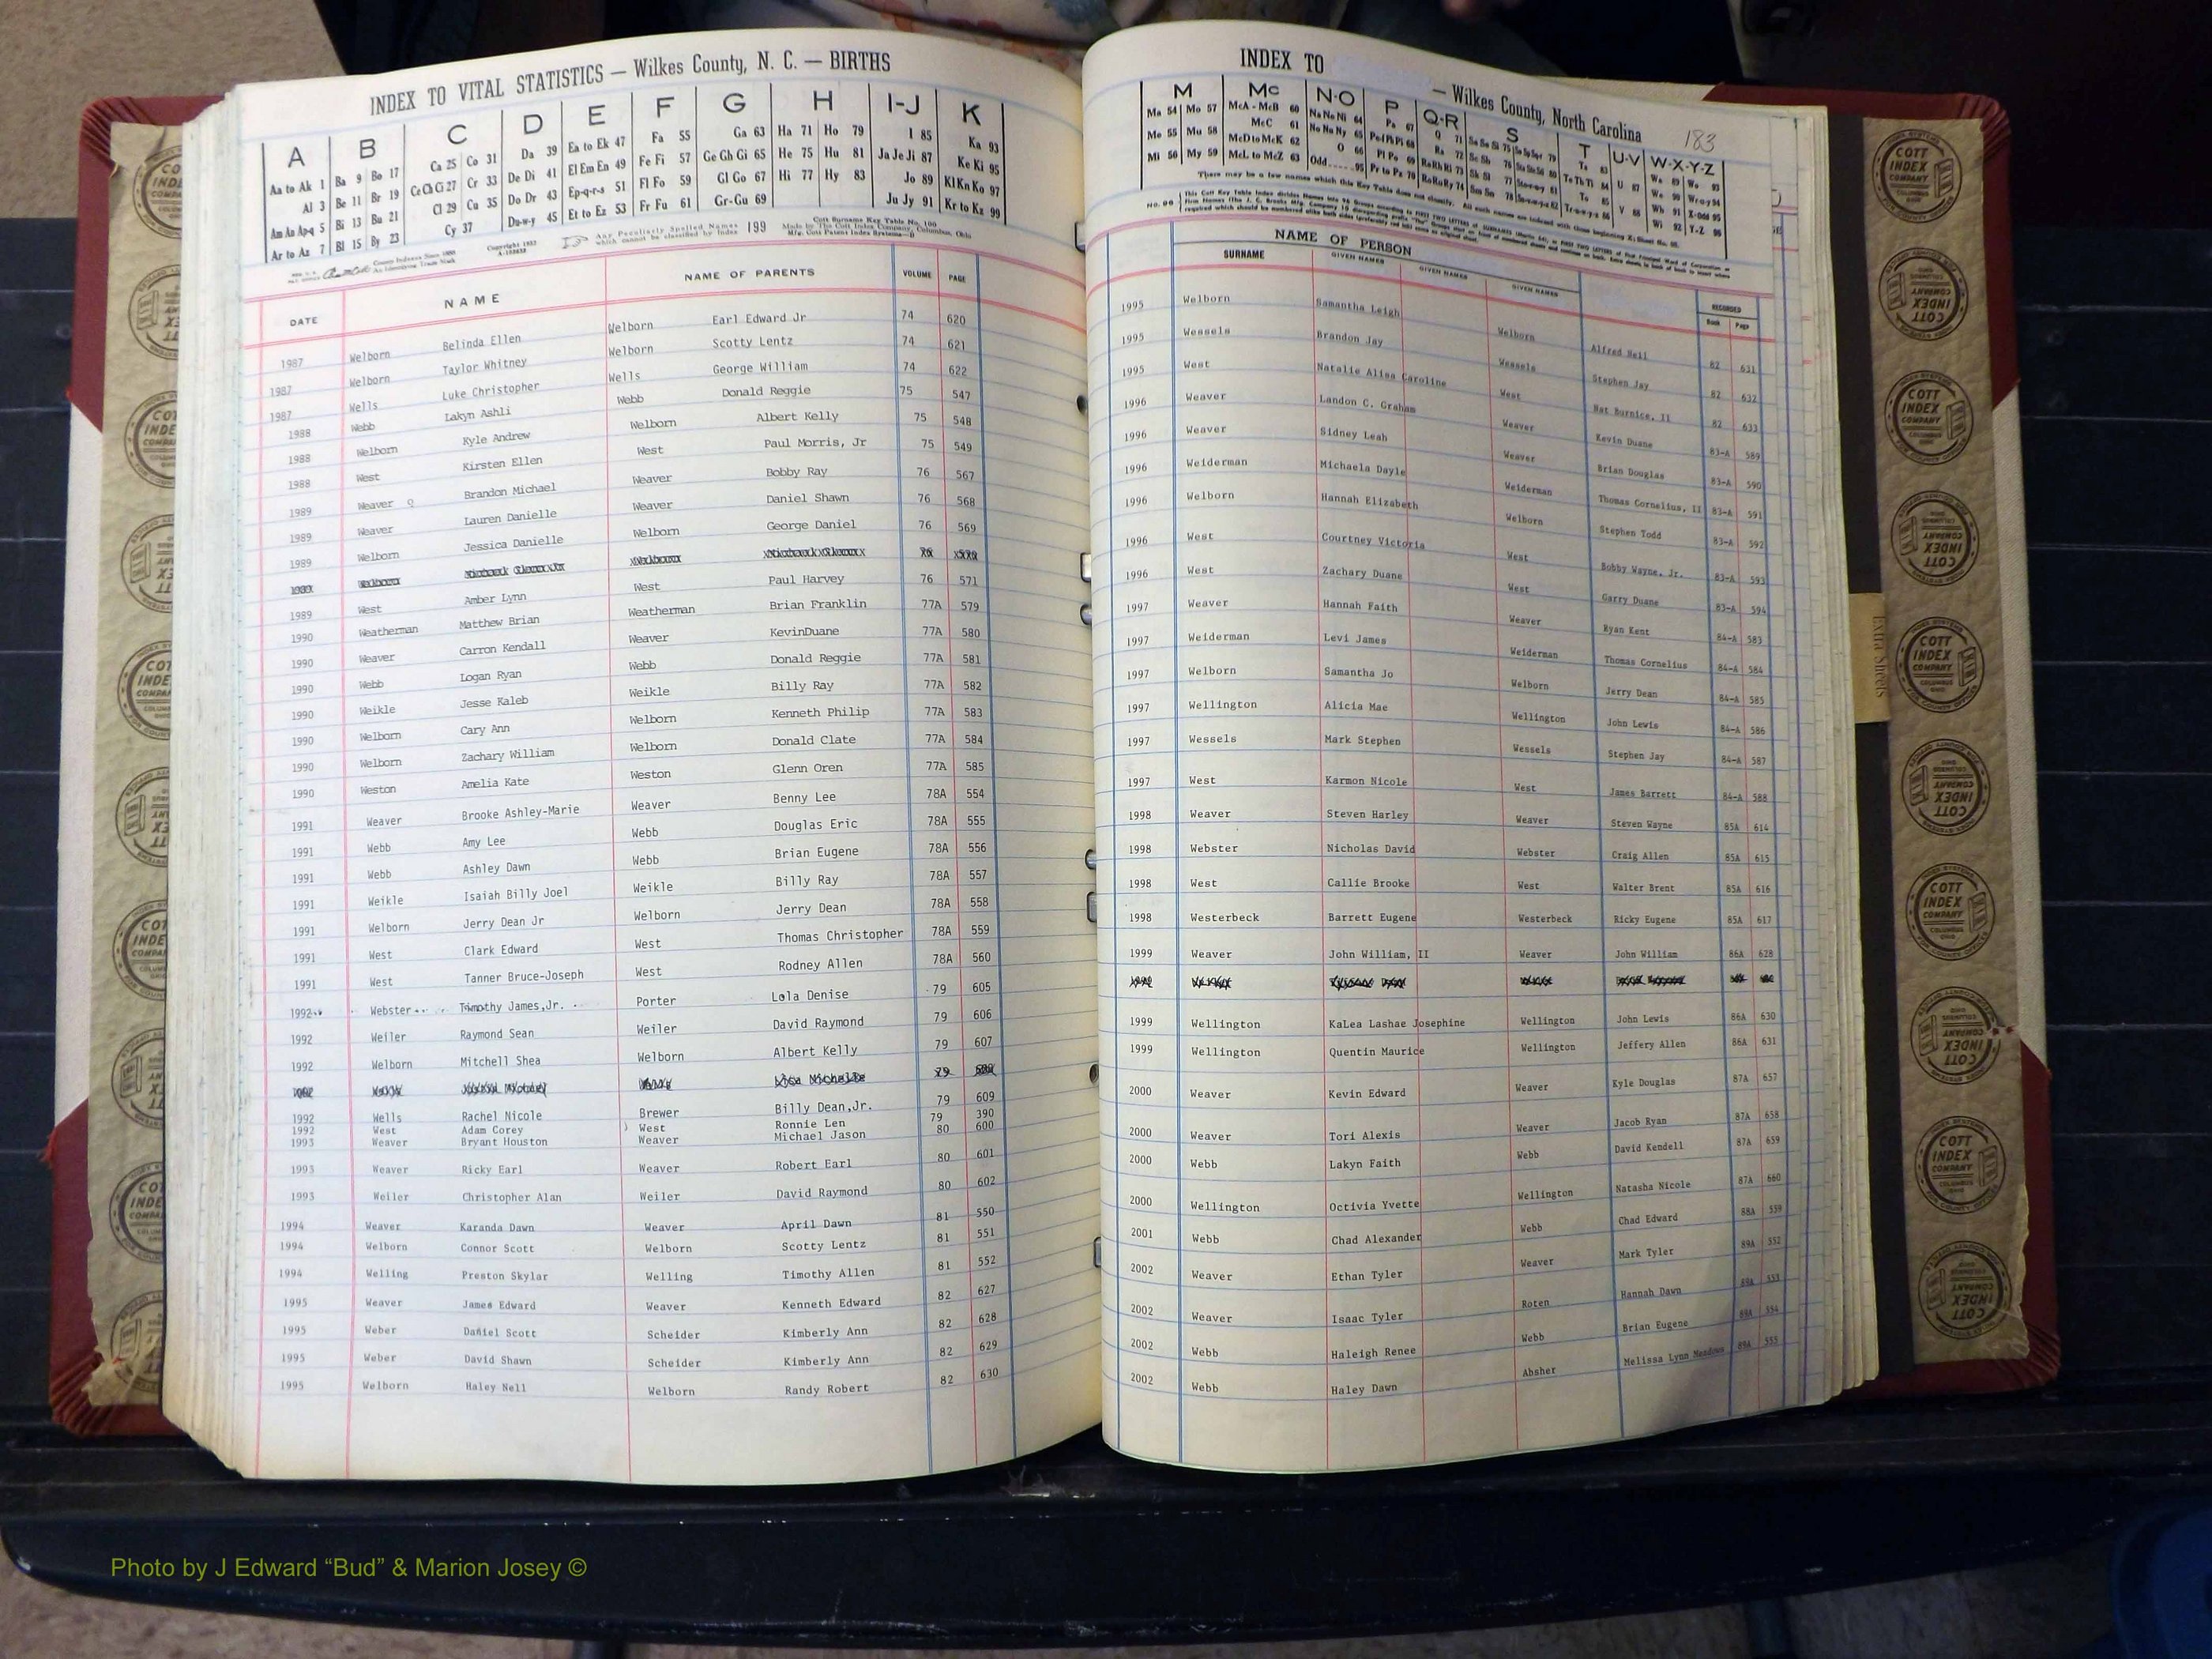 INDEX TO VITAL STATISTICS — Wilkes County, N. C. — BIRTHS
A B C D E F G H I-J K
Aa to Ak 1 Ba 9 Bo 17 Ca 25 Co 31 Da 39 Ea to Ek 47 Fa 55 Ga 63 Ha 71 Ho 79 I 85 Ka 93
Al 3 Be 11 Br 19 Ce Ch Ci 27 Cr 33 De Di 41 El Em En 49 Fe Fi 57 Ge Gh Gi 65 He 75 Hu 81 Ja Je Ji 87 Ke Ki 95
Am An Ap-q 5 Bi 13 Bu 21 Cl 29 Cu 35 Do Dr 43 Ep-q-r-s 51 Fl Fo 59 Gl Go 67 Hi 77 Hy 83 Jo 89 Kl Kn Ko 97
Ar to Az 7 Bl 15 By 23 Cy 37 Du-w-y 45 Et to Ez 53 Fr Fu 61 Gr-Gu 69 Ju Jy 91 Kr to Kz 99
Any Peculiarly Spelled Names which cannot be classified by Index 199
Cott Surname Key Table No. 100
Made by The Cott Index Company, Columbus, Ohio
DATE NAME NAME OF PARENTS VOLUME PAGE
1987 Welborn Belinda Ellen Welborn Earl Edward Jr 74 620
1987 Welborn Taylor Whitney Welborn Scotty Lentz 74 621
1987 Wells Luke Christopher Wells George William 74 622
1988 Webb Lakyn Ashli Webb Donald Reggie 75 547
1988 Welborn Kyle Andrew Welborn Albert Kelly 75 548
1988 West Kirsten Ellen West Paul Morris, Jr 75 549
1989 Weaver Brandon Michael Weaver Bobby Ray 76 567
1989 Weaver Lauren Danielle Weaver Daniel Shawn 76 568
1989 Welborn Jessica Danielle Welborn George Daniel 76 569
1989 West Amber Lynn West Paul Harvey 76 571
1990 Weatherman Matthew Brian Weatherman Brian Franklin 77A 579
1990 Weaver Carron Kendall Weaver KevinDuane 77A 580
1990 Webb Logan Ryan Webb Donald Reggie 77A 581
1990 Weikle Jesse Kaleb Weikle Billy Ray 77A 582
1990 Welborn Cary Ann Welborn Kenneth Philip 77A 583
1990 Welborn Zachary William Welborn Donald Clate 77A 584
1990 Weston Amelia Kate Weston Glenn Oren 77A 585
1991 Weaver Brooke Ashley-Marie Weaver Benny Lee 78A 554
1991 Webb Amy Lee Webb Douglas Eric 78A 555
1991 Webb Ashley Dawn Webb Brian Eugene 78A 556
1991 Weikle Isaiah Billy Joel Weikle Billy Ray 78A 557
1991 Welborn Jerry Dean Jr Welborn Jerry Dean 78A 558
1991 West Clark Edward West Thomas Christopher 78A 559
1991 West Tanner Bruce-Joseph West Rodney Allen 78A 560
1992 Webster Timothy James,Jr. Porter Lola Denise 79 605
1992 Weiler Raymond Sean Weiler David Raymond 79 606
1992 Welborn Mitchell Shea Welborn Albert Kelly 79 607
1992 Wells Rachel Nicole Brewer Billy Dean,Jr. 79 609
1992 West Adam Corey West Ronnie Len 79 390
1993 Weaver Bryant Houston Weaver Michael Jason 80 600
1993 Weaver Ricky Earl Weaver Robert Earl 80 601
1993 Weiler Christopher Alan Weiler David Raymond 80 602
1994 Weaver Karanda Dawn Weaver April Dawn 81 550
1994 Welborn Connor Scott Welborn Scotty Lentz 81 551
1994 Welling Preston Skylar Welling Timothy Allen 81 552
1995 Weaver James Edward Weaver Kenneth Edward 82 627
1995 Weber Daniel Scott Scheider Kimberly Ann 82 628
1995 Weber David Shawn Scheider Kimberly Ann 82 629
1995 Welborn Haley Nell Welborn Randy Robert 82 630
INDEX TO — Wilkes County, North Carolina 183
M Mc N-O P Q-R S T U-V W-X-Y-Z
Ma 54 Mo 57 McA - McB 60 Na Ne Ni 64 Pa 67 Q 71
Me 55 Mu 58 McC 61 No Nu Ny 65
Mi 56 My 59 McD to McK 62 O 66
McL to McZ 63 Odd 95 Pr to Pz 70
NAME OF PERSON
SURNAME GIVEN NAMES GIVEN NAMES GIVEN NAMES RECORDED
Book Page
1995 Welborn Samantha Leigh Welborn Alfred Neil 82 631
1995 Wessels Brandon Jay Wessels Stephen Jay 82 632
1995 West Natalie Alisa Caroline West Nat Burnice, II 82 633
1996 Weaver Landon C. Graham Weaver Kevin Duane 83-A 589
1996 Weaver Sidney Leah Weaver Brian Douglas 83-A 590
1996 Weiderman Michaela Dayle Weiderman Thomas Cornelius, II 83-A 591
1996 Welborn Hannah Elizabeth Welborn Stephen Todd 83-A 592
1996 West Courtney Victoria West Bobby Wayne, Jr. 83-A 593
1996 West Zachary Duane West Garry Duane 83-A 594
1997 Weaver Hannah Faith Weaver Ryan Kent 84-A 583
1997 Weiderman Levi James Weiderman Thomas Cornelius 84-A 584
1997 Welborn Samantha Jo Welborn Jerry Dean 84-A 585
1997 Wellington Alicia Mae Wellington John Lewis 84-A 586
1997 Wessels Mark Stephen Wessels Stephen Jay 84-A 587
1997 West Karmon Nicole West James Barrett 84-A 588
1998 Weaver Steven Harley Weaver Steven Wayne 85A 614
1998 Webster Nicholas David Webster Craig Allen 85A 615
1998 West Callie Brooke West Walter Brent 85A 616
1998 Westerbeck Barrett Eugene Westerbeck Ricky Eugene 85A 617
1999 Weaver John William, II Weaver John William 86A 628
1999 Wellington KaLea Lashae Josephine Wellington John Lewis 86A 630
1999 Wellington Quentin Maurice Wellington Jeffery Allen 86A 631
2000 Weaver Kevin Edward Weaver Kyle Douglas 87A 657
2000 Weaver Tori Alexis Weaver Jacob Ryan 87A 658
2000 Webb Lakyn Faith Webb David Kendell 87A 659
2000 Wellington Octivia Yvette Wellington Natasha Nicole 87A 660
2001 Webb Chad Alexander Webb Chad Edward 88A 559
2002 Weaver Ethan Tyler Weaver Mark Tyler 89A 552
2002 Weaver Isaac Tyler Roten Hannah Dawn 89A 553
2002 Webb Haleigh Renee Webb Brian Eugene 89A 554
2002 Webb Haley Dawn Absher Melissa Lynn Meadows 89A 555
Extra Sheets
COTT INDEX COMPANY
Photo by J Edward “Bud” & Marion Josey ©